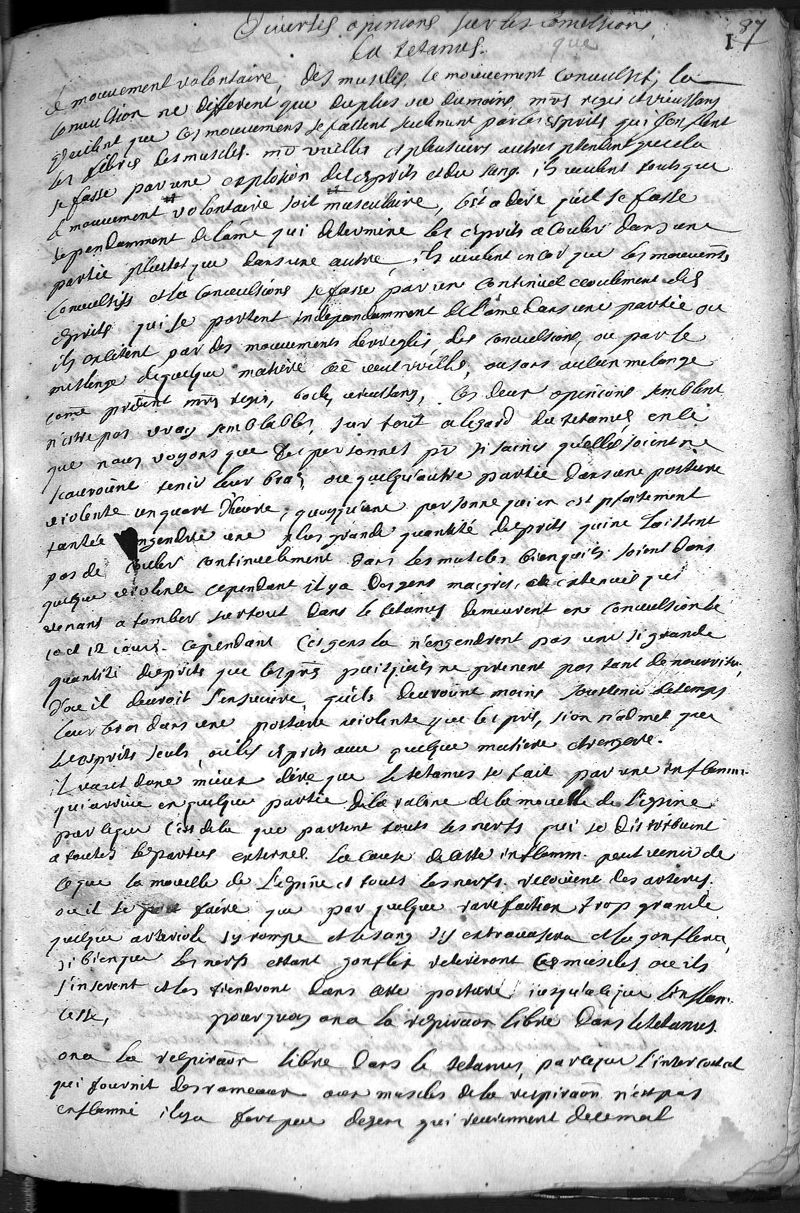 187
Diverses opinions sur les convulsions
que
Le tetanus.
Le mouvement volontaire, des muscles, le mouvement convulsif, la
Convulsion ne different que du plus ou du moins, mrs regis et vieussans
que ces mouvements se fassent seulement par les esprits qui gonflent
les fibres des muscles. mr vuillis et plusieurs autres pretendent que cela
se fasse par une explosion des esprits et du sang. ils veulent touts que
le mouvement volontaire soit musculaire, c'est a dire qu'il se fasse
dependamment de lame qui determine les esprits a couler dans une
partie plustot que dans une autre, ils veulent encor que les mouvemts
Convulsifs et la Convulsions se fasse par un continuel ecoulement des
esprits qui se portent independamment de l'ame dans une partie ou
ils excitent par des mouvements dereglés des convulsions, ou par le
meslange de quelque matiere come veut vuillis, ou sans aucun melange
come pretendent mrs regis, vieussans, ces deux opinions semblent
n'estre pas vray semblables, sur tout a legard du tetanus en ce
que nous voyons que des personnes pr si saines qu'elles soient ne
scauroint tenir leur bras ou quelqu'autre partie dans une posture
violente un quart d'heure; quoyqu'une personne qui en est
engendre une plus grande quantité desprits qui ne laissent
pas de couler continuellement dans les muscles bien qu'ils soient dans
quelque violence cependant il y a des gens maigres, et extenues qui
venans a tomber surtout dans le tetanus demeurent en convulsion le
10 et 12 jours. cependant ces gens la n'engendrent pas une si grande
quantité desprits que les prs puisqu'ils ne prenent pas tant de nourritu.
d'ou il devroit s'ensuivre qu'ils devroint moins soustenir le temps
leur bras dans une posture violente que les prs, si on n'admet que
les esprits seuls, ou les esprits avec quelque matiere etrangere.
il vaut donc mieux dire que le tetanus se fait par une inflamm.
qui arrive en quelque partie de la racine de la mouelle de l'epine
parceque c'est de la que partent touts les nerfs qui se distribuent
a toutes les parties externes. La cause de cette inflamm. peut venir de
ce que la mouelle de l'epine et touts les nerfs recoivent des arteres.
ou il se peut faire que par quelque rarefaction trop grande
quelque arteriole s'y rompe et le sang s'y extravasera et la gonflera,
si bien que les nerfs estant gonflez retireront les muscles ou ils
s'inserent et les tiendront dans cette posture jusqu'a ce que l'inflam.
cesse, pourquoy on a la respiraon libre dans le tetanus
on a la respiraon libre dans le tetanus, parceque l'intercostal
qui fournit des rameaux aux muscles de la respiraon n'est pas
enflammé il y a fort peu de gens qui reviennent de ce mal